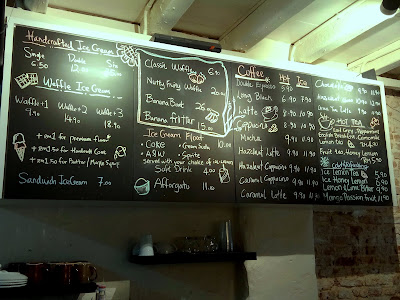 Handcrafted Ice Cream
Single Double
6.50 12.00
Waffle Ice Cream
Waffle+1 Waffle+2 Waffle+3
9.90 14.90 18.90
+ RM1 for Premium flavor
+ RM1.50 for Handmade Cone
+ RM1.50 for Butter / Maple Syrup
Sandwich IceCream 7.00
Classic Waffle 6.90
Nutty Funny Waffle
Banana Boat
Banana Fritter 15.00
Ice Cream Float
Coke
Cream Soda
A&W
Sprite
10.00
Served with your choice of ice-cream
Soft Drink 4.00
Affogato 11.00
Coffee Hot Ice
Double Espresso 5.90
Long Black 6.90 7.90
Latte
Cappuccino
Mocha 9.90 11.90
Hazelnut Latte 9.90 11.90
Hazelnut Cappuccino 9.90 11.90
Caramel Cappucino 9.90 11.90
Caramel Latte 9.90 11.90
Chocolate
HOT TEA
Earl Grey, Peppermint
English Breakfast, Camomile
Lemon tea
Fruit tea, Honey Lemon
Ice Lemon Tea 6.90
Ice Honey Lemon
Mango Passion Fruit 11.90